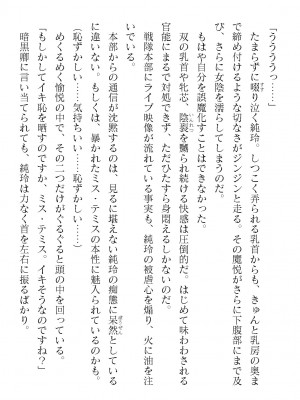 「うううっ……」
たまらずに啜り泣く純玲。しつこく弄られる乳首からも、きゅんと乳房の奥ま
で締め付けるような切なさがジンジンと走る。その魔悦がさらに下腹部にまで及
び、さらに女陰を濡らしてしまうのだ。
もはや自分を誤魔化すことはできなかった。
双の乳首や牝芯、陰裂を嬲られ続ける快感は圧倒的だ。はじめて味わわされる
官能にまるで対処できず、ただひたすら身悶えするしかないのだ。
戦隊本部にライブ映像が流れている事実も、純玲の被虐心を煽り、火に油を注
いでいる。
本部からの通信が沈黙するのは、見るに堪えない純玲の痴態に呆然としている
に違いない。もしくは、暴かれたミス・テミスの本性に魅入られているのかも。
（恥ずかしい……気持ちいい……恥ずかしい……）
めくるめく愉悦の中で、その二つだけがぐるぐると頭の中を回っている。
「もしかしてイキ恥を晒すのですか、ミス・テミス。イキそうなのですね？」
暗黒卿に言い当てられても、純玲は力なく首を左右に振るばかり。